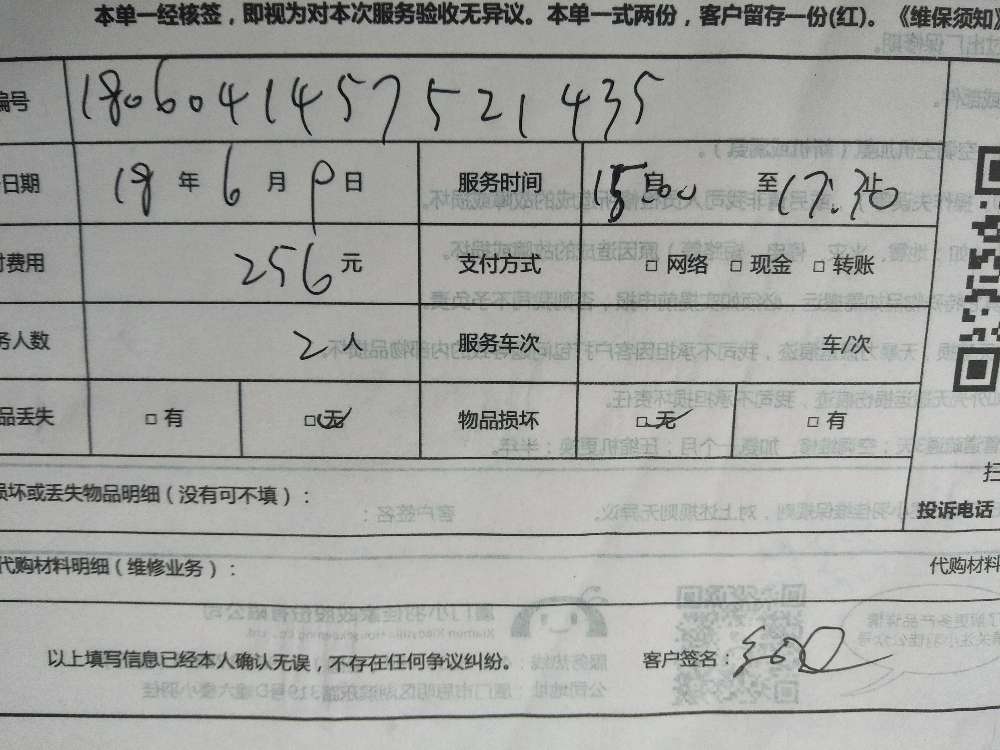 本单一经核签，即视为对本次服务验收无异议。本单一式两份，客户留存一份(红)。《维保须知》
编号 180604145752 1435
日期 18 年 6 月 日 服务时间 15:00 至 17:30 止
费用 256 元 支付方式 □ 网络 □ 现金 □ 转账
务人数 2 人 服务车次 车/次
品丢失 □ 有 □ 无 物品损坏 □ 无 □ 有
损坏或丢失物品明细（没有可不填）： 扫
投诉电话
代购材料明细（维修业务）： 代购材料
以上填写信息已经本人确认无误，不存在任何争议纠纷。 客户签名：